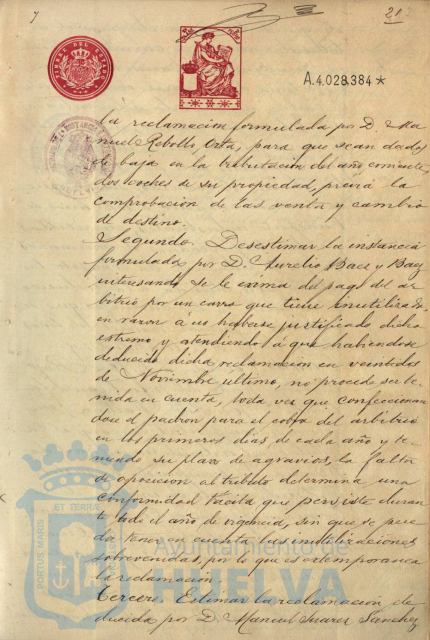 7
21
TIMBRE DEL ESTADO
A.4.028.384*
la reclamacion formulada por D. Ma
nuel Rebollo Orta, para que sean dados
de baja en la tributacion del año corriente,
dos coches de su propiedad, previa la
comprobacion de las venta y cambio
de destino.
Segundo. Desestimar la instancia
formulada por D. Aurelio Baes y Baez
interesando se le exima del pago del ar
bitrio por un carro que tiene inutilizado,
en razon á no haberse justificado dicho
extremo y atendiendo á que habiendose
deducido dicha reclamacion en veintidos
de Noviembre ultimo, no procede ser te
nida en cuenta, toda vez que confeccionan
dose el padron para el cobro del arbitrio
en los primeros dias de cada año y te
niendo su plazo de agravios, la falta
de oposicion al tributo determina una
conformidad tacita que persiste duran
te todo el año de vigencia, sin que se pue
da tener en cuenta las inutilizaciones
sobrevenidas, por lo que es extemporanea
la reclamacion.
Tercero. Estimar la reclamacion de
ducida por D. Manuel Suarez Sanchez
PORTUS MARIS ET TERRAE
Ayuntamiento de
HUELVA